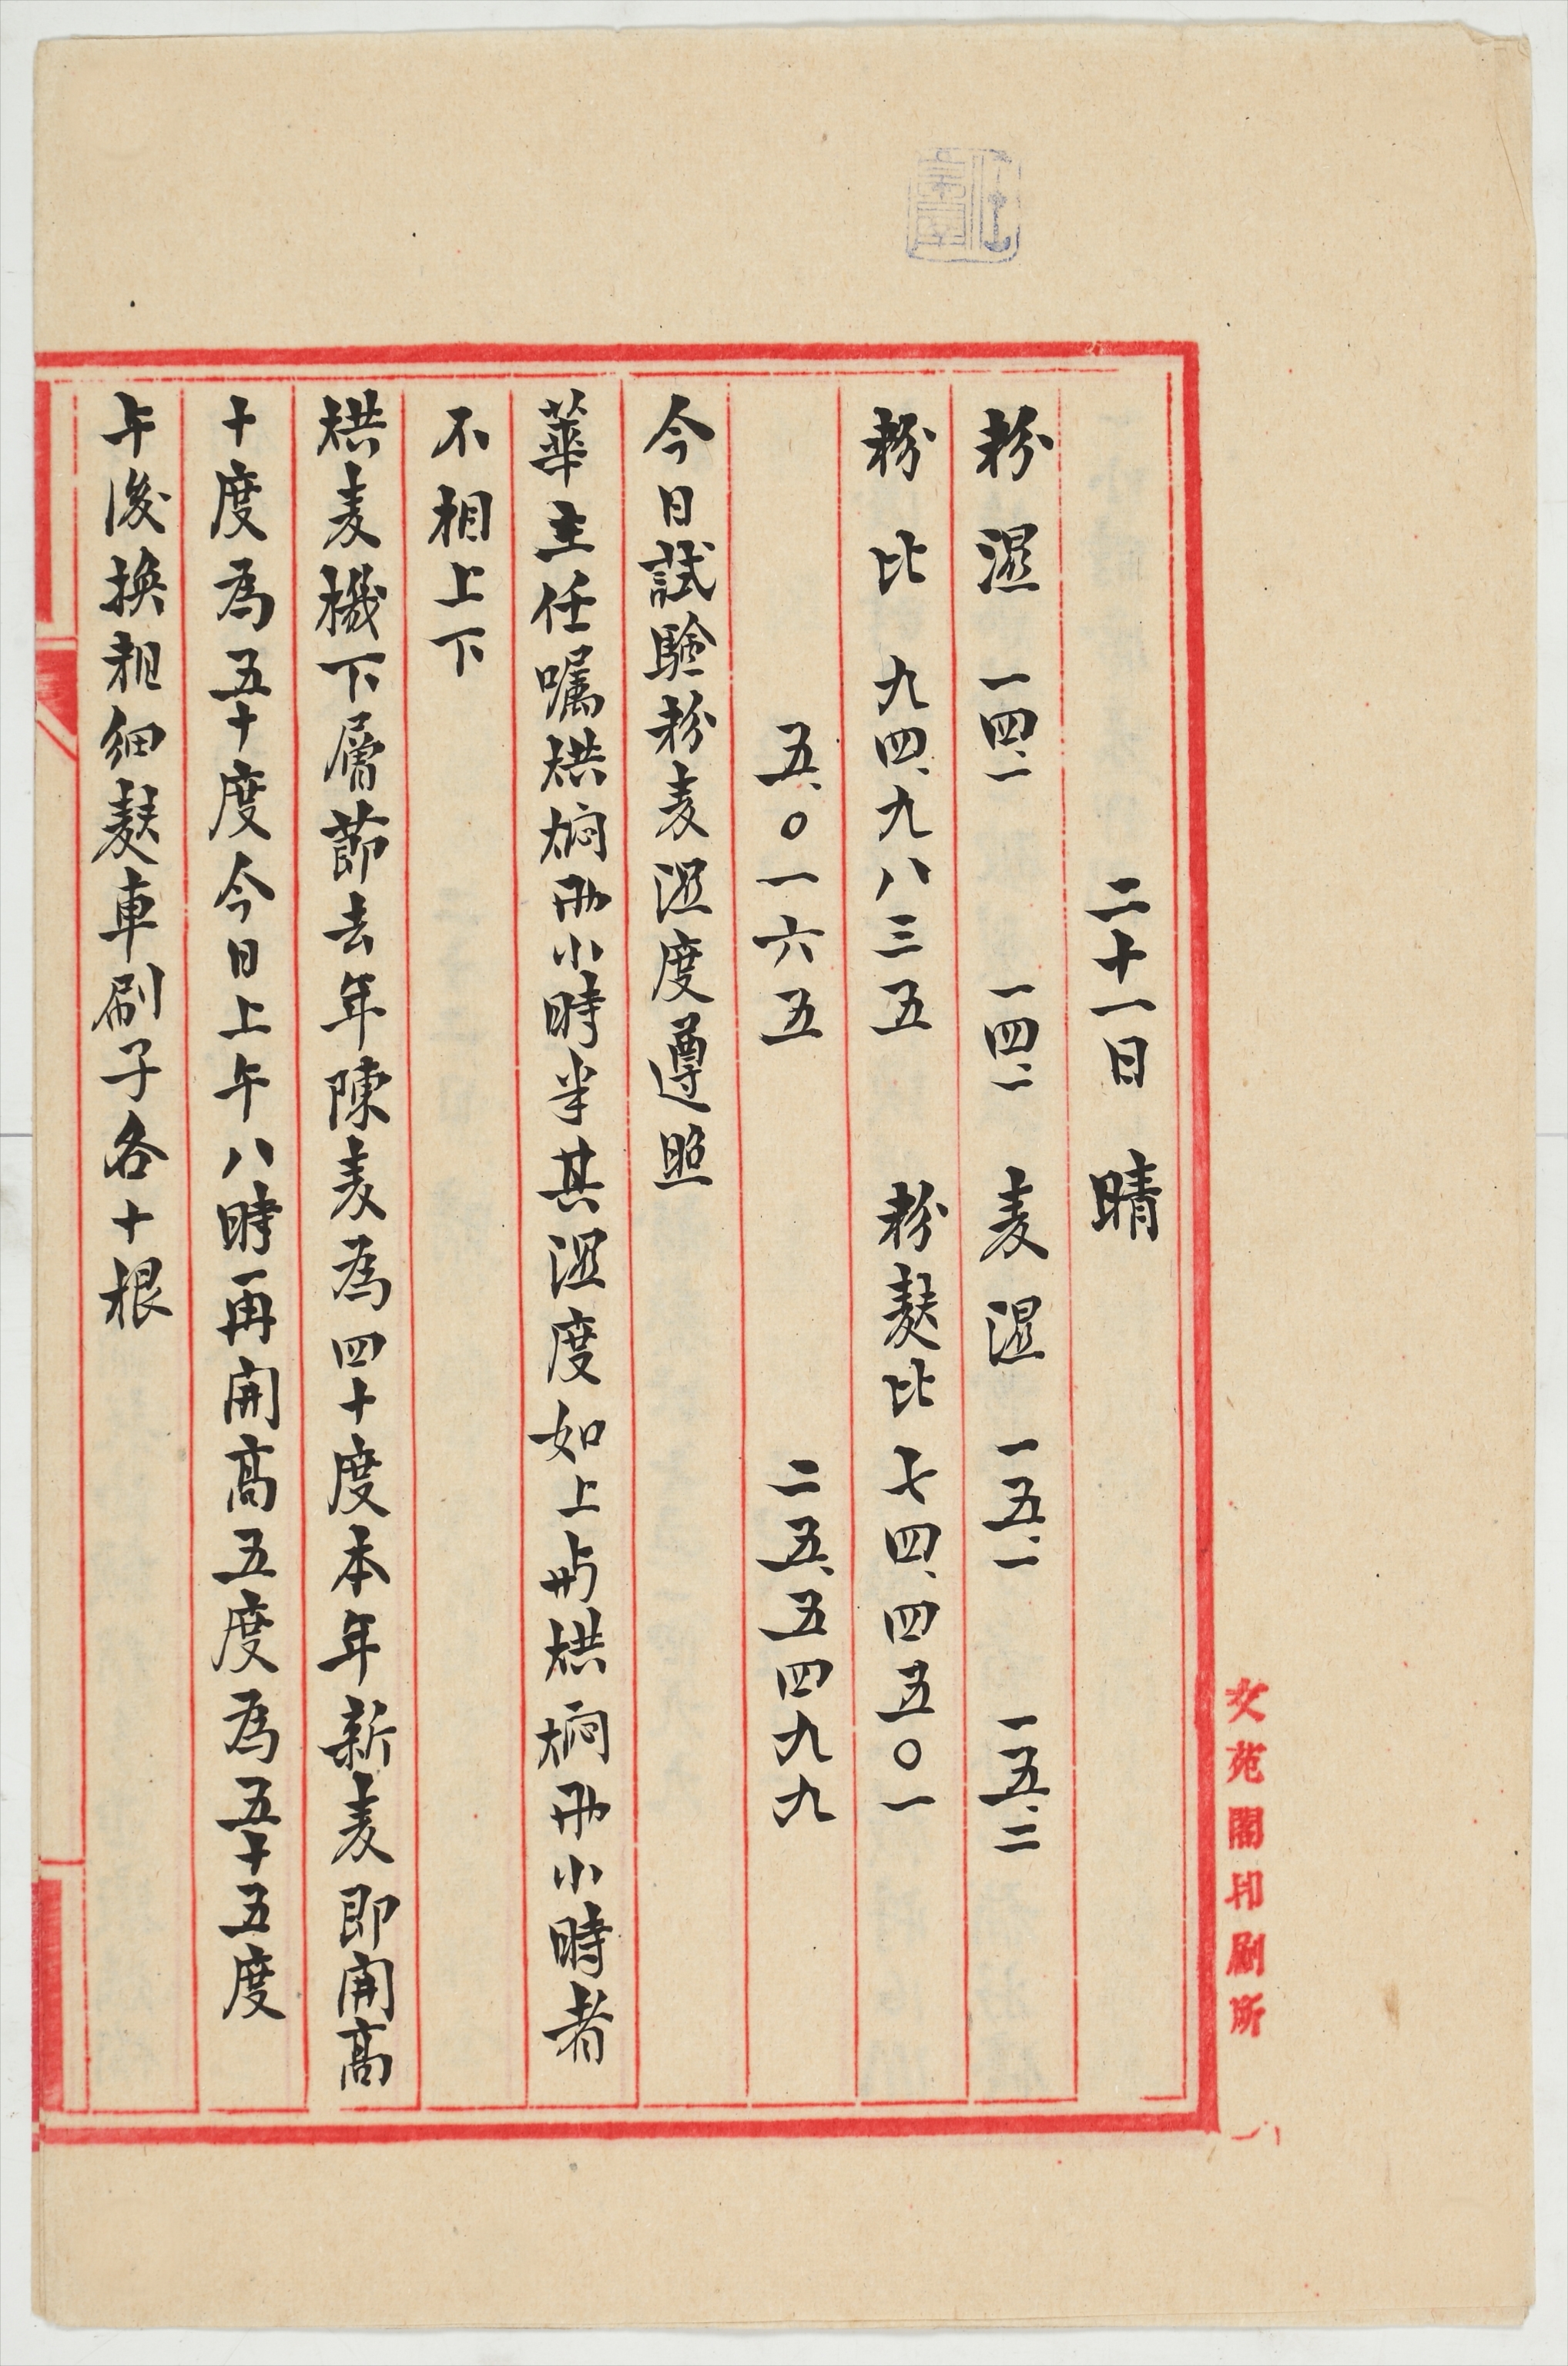 二十一日 晴
粉 濕 一四、一 一四、一 麦 濕 一五、一 一五、二
粉 比 九四、九八三五 粉麩比 七四、四五〇一
五、〇一六五 二五、五四九九
今日試驗粉麦濕度遵照
華主任嘱烘焖両小時半其濕度如上與烘焖両小時者
不相上下
烘麦機下層節去年陳麦為四十度本年新麦即開高
十度為五十度今日上午八時再開高五度為五十五度
午後換粗細麩車刷子各十根
文苑閣印刷所